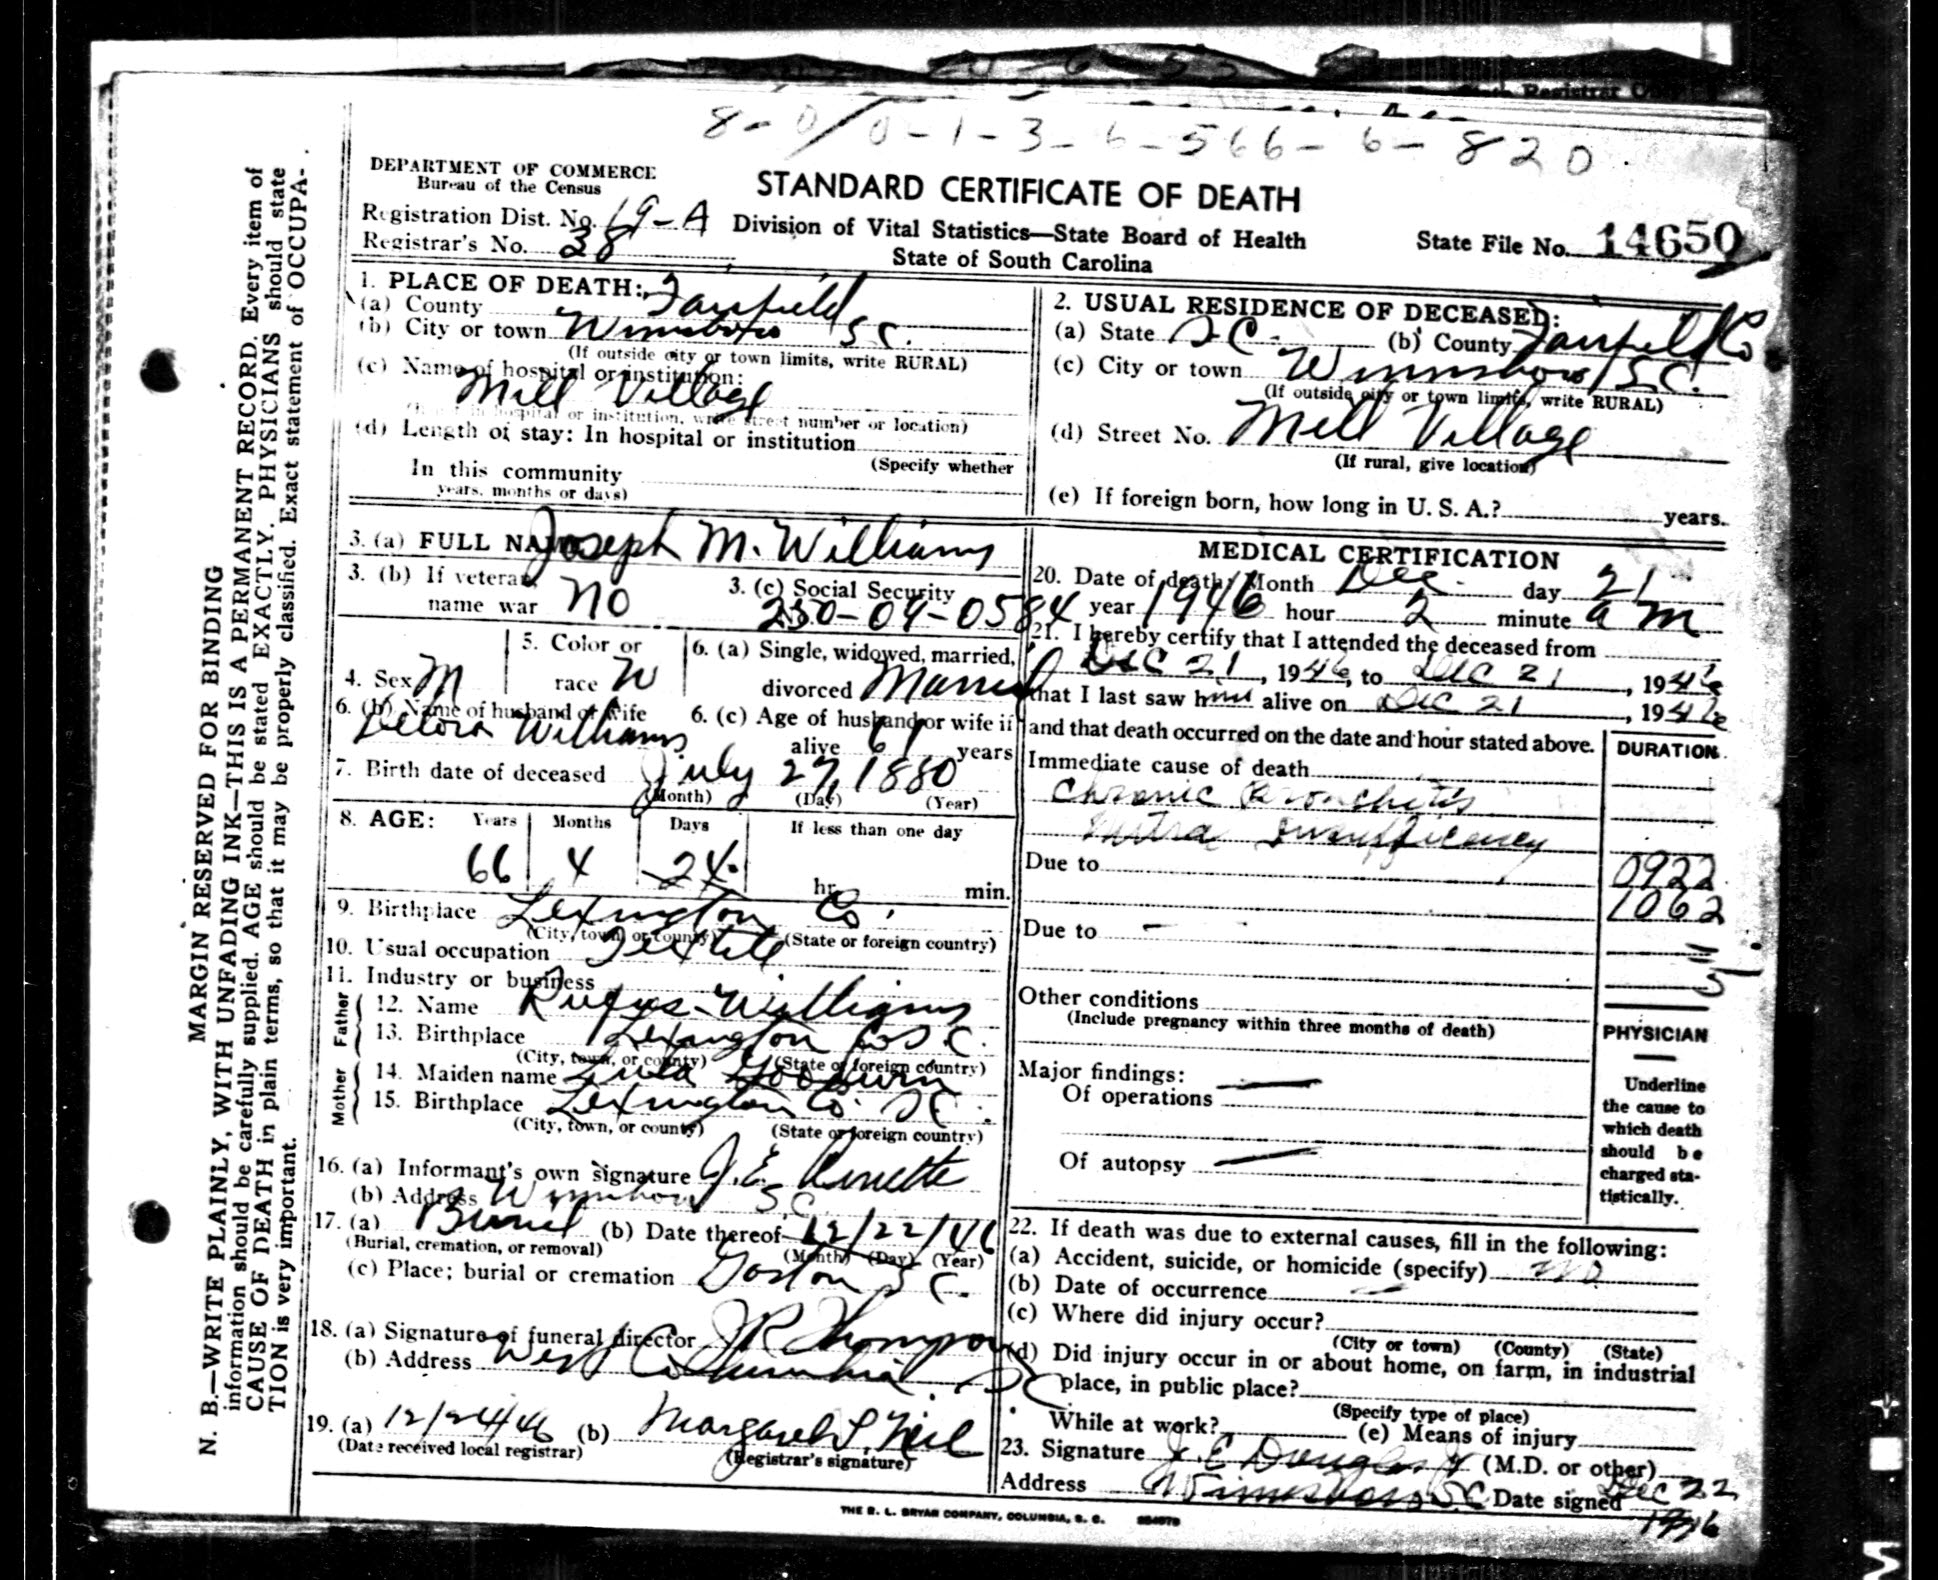 8-0/0-1-3-6-566-6-820
DEPARTMENT OF COMMERCE
Bureau of the Census
STANDARD CERTIFICATE OF DEATH
Registration Dist. No. 19-A
Division of Vital Statistics—State Board of Health
State File No. 14650
Registrar's No. 38
State of South Carolina
1. PLACE OF DEATH:
(a) County Fairfield
(b) City or town Winnsboro S.C.
(If outside city or town limits, write RURAL)
(c) Name of hospital or institution:
Mill Village
(If not in hospital or institution, write street number or location)
(d) Length of stay: In hospital or institution
(Specify whether
In this community
years, months or days)
2. USUAL RESIDENCE OF DECEASED:
(a) State S C (b) County Fairfield Co
(c) City or town Winnsboro S.C.
(If outside city or town limits, write RURAL)
(d) Street No. Mill Village
(If rural, give location)
(e) If foreign born, how long in U. S. A.? years.
3. (a) FULL NAME Joseph M. Williams
3. (b) If veteran name war No
3. (c) Social Security
No. 250-09-0584
4. Sex M
5. Color or race W
6. (a) Single, widowed, married, divorced Married
6. (b) Name of husband or wife
Williams
6. (c) Age of husband or wife if alive 61 years
7. Birth date of deceased July 27, 1880
(Month) (Day) (Year)
8. AGE: Years Months Days If less than one day
66 4 24 hr. min.
9. Birthplace Lexington Co.
(City, town, or county) (State or foreign country)
10. Usual occupation Textile
11. Industry or business
Father
12. Name Rufus Williams
13. Birthplace Lexington Co S.C.
(City, town, or county) (State or foreign country)
Mother
14. Maiden name
15. Birthplace Lexington Co. S C.
(City, town, or county) (State or foreign country)
16. (a) Informant's own signature J. E.
(b) Address Winnsboro S.C.
17. (a) Burial (b) Date thereof 12/22/46
(Burial, cremation, or removal) (Month) (Day) (Year)
(c) Place; burial or cremation Gaston S C.
18. (a) Signature of funeral director J R Thompson
(b) Address West Columbia, S C
19. (a) 12/24/46 (b) Margaret Neil
(Date received local registrar) (Registrar's signature)
MEDICAL CERTIFICATION
20. Date of death: Month Dec. day 21
year 1946 hour 2 minute a m
21. I hereby certify that I attended the deceased from
Dec 21, 1946, to Dec 21, 1946
that I last saw him alive on Dec 21, 1946
and that death occurred on the date and hour stated above.
DURATION
Immediate cause of death
Chronic Bronchitis
Mitral Insufficiency
Due to
0922
1062
Due to —
Other conditions
(Include pregnancy within three months of death)
Major findings:
Of operations —
Of autopsy —
PHYSICIAN
Underline
the cause to
which death
should be
charged sta-
tistically.
22. If death was due to external causes, fill in the following:
(a) Accident, suicide, or homicide (specify) no
(b) Date of occurrence —
(c) Where did injury occur?
(City or town) (County) (State)
(d) Did injury occur in or about home, on farm, in industrial
place, in public place?
(Specify type of place)
While at work? (e) Means of injury
23. Signature J. E Douglas Jr (M.D. or other)
Address Winnsboro S.C Date signed Dec 22
1946
THE R. L. BRYAN COMPANY, COLUMBIA, S. C.
MARGIN RESERVED FOR BINDING
N. B.—WRITE PLAINLY, WITH UNFADING INK—THIS IS A PERMANENT RECORD. Every item of
information should be carefully supplied. AGE should be stated EXACTLY. PHYSICIANS should state
CAUSE OF DEATH in plain terms, so that it may be properly classified. Exact statement of OCCUPA-
TION is very important.